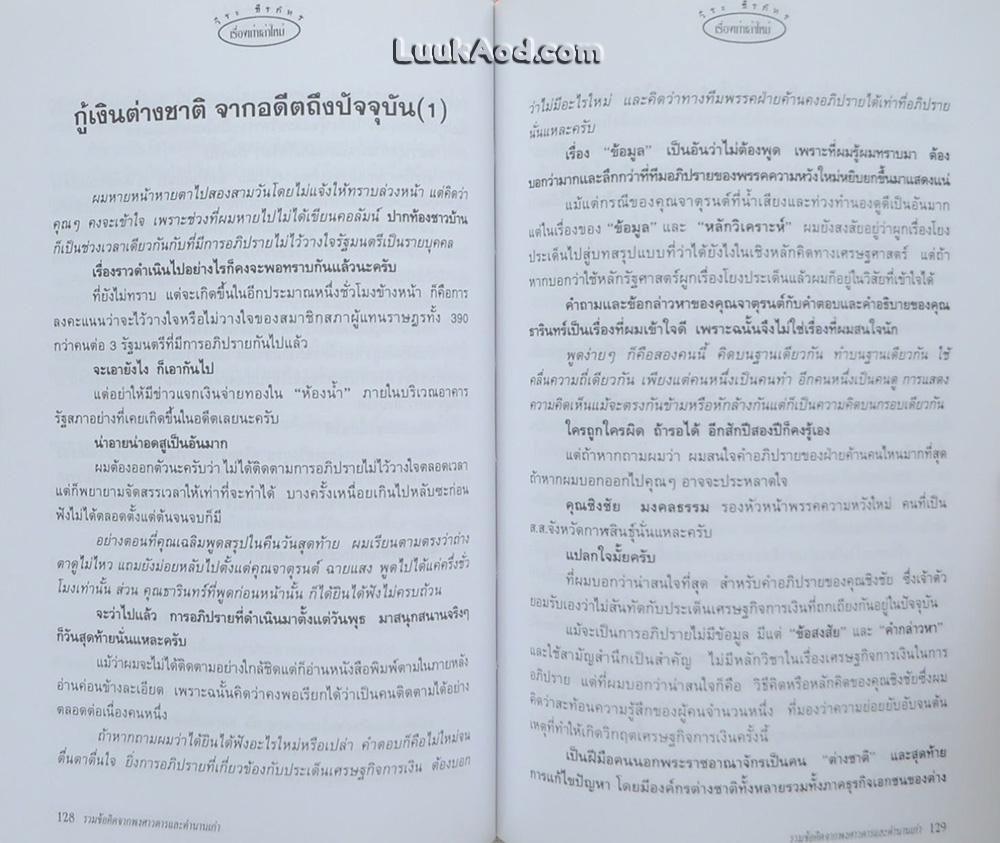 วีระ ธีรภัทร
เรื่องเก่าเล่าใหม่
LuukAod.com
กู้เงินต่างชาติ จากอดีตถึงปัจจุบัน(1)
ผมหายหน้าหายตาไปสองสามวันโดยไม่แจ้งให้ทราบล่วงหน้า แต่คิดว่า
คุณๆ คงจะเข้าใจ เพราะช่วงที่ผมหายไปไม่ได้เขียนคอลัมน์ ปากท้องชาวบ้าน
ก็เป็นช่วงเวลาเดียวกันกับที่มีการอภิปรายไม่ไว้วางใจรัฐมนตรีเป็นรายบุคคล
เรื่องราวดำเนินไปอย่างไรก็คงจะพอทราบกันแล้วนะครับ
ที่ยังไม่ทราบ แต่จะเกิดขึ้นในอีกประมาณหนึ่งชั่วโมงข้างหน้า ก็คือการ
ลงคะแนนว่าจะไว้วางใจหรือไม่วางใจของสมาชิกสภาผู้แทนราษฎรทั้ง 390
กว่าคนต่อ 3 รัฐมนตรีที่มีการอภิปรายกันไปแล้ว
จะเอายังไง ก็เอากันไป
แต่อย่าให้มีข่าวแจกเงินจ่ายทองใน "ห้องน้ำ" ภายในบริเวณอาคาร
รัฐสภาอย่างที่เคยเกิดขึ้นในอดีตเลยนะครับ
น่าอายน่าอดสูเป็นอันมาก
ผมต้องออกตัวนะครับว่า ไม่ได้ติดตามการอภิปรายไม่ไว้วางใจตลอดเวลา
แต่ก็พยายามจัดสรรเวลาให้เท่าที่จะทำได้ บางครั้งเหนื่อยเกินไปหลับซะก่อน
ฟังไม่ได้ตลอดตั้งแต่ต้นจนจบก็มี
อย่างตอนที่คุณเฉลิมพูดสรุปในคืนวันสุดท้าย ผมเรียนตามตรงว่าถ่าง
ตาดูไม่ไหว แถมยังม่อยหลับไปตั้งแต่คุณจาตุรนต์ ฉายแสง พูดไปได้แค่ครึ่งชั่ว
โมงเท่านั้น ส่วน คุณธารินทร์ที่พูดก่อนหน้านั้น ก็ได้ยินได้ฟังไม่ครบถ้วน
จะว่าไปแล้ว การอภิปรายที่ดำเนินมาตั้งแต่วันพุธ มาสนุกสนานจริงๆ
ก็วันสุดท้ายนั่นแหละครับ
แม้ว่าผมจะไม่ได้ติดตามอย่างใกล้ชิดแต่ก็อ่านหนังสือพิมพ์ตามในภายหลัง
อ่านค่อนข้างละเอียด เพราะฉนั้นคิดว่าคงพอเรียกได้ว่าเป็นคนติดตามได้อย่าง
ตลอดต่อเนื่องคนหนึ่ง
ถ้าหากถามผมว่าได้ยินได้ฟังอะไรใหม่หรือเปล่า คำตอบก็คือไม่ใหม่จน
ตื่นตาตื่นใจ ยิ่งการอภิปรายที่เกี่ยวข้องกับประเด็นเศรษฐกิจการเงิน ต้องบอก
128 รวมข้อคิดจากพงศาวดารและตำนานเก่า
วีระ ธีรภัทร
เรื่องเก่าเล่าใหม่
ว่าไม่มีอะไรใหม่ และคิดว่าทางทีมพรรคฝ่ายค้านคงอภิปรายได้เท่าที่อภิปราย
นั่นแหละครับ
เรื่อง "ข้อมูล" เป็นอันว่าไม่ต้องพูด เพราะที่ผมรู้ผมทราบมา ต้อง
บอกว่ามากและลึกกว่าที่ทีมอภิปรายของพรรคความหวังใหม่หยิบยกขึ้นมาแสดงแน่
แม้แต่กรณีของคุณจาตุรนต์ที่น้ำเสียงและท่วงทำนองดูดีเป็นอันมาก
แต่ในเรื่องของ "ข้อมูล" และ "หลักวิเคราะห์" ผมยังสงสัยอยู่ว่าผูกเรื่องโยง
ประเด็นไปสู่บทสรุปแบบที่ว่าได้ยังไงในเชิงหลักคิดทางเศรษฐศาสตร์ แต่ถ้า
หากบอกว่าใช้หลักรัฐศาสตร์ผูกเรื่องโยงประเด็นแล้วผมก็อยู่ในวิสัยที่เข้าใจได้
คำถามและข้อกล่าวหาของคุณจาตุรนต์กับคำตอบและคำอธิบายของคุณ
ธารินทร์เป็นเรื่องที่ผมเข้าใจดี เพราะฉนั้นจึงไม่ใช่เรื่องที่ผมสนใจนัก
พูดง่ายๆ ก็คือสองคนนี้ คิดบนฐานเดียวกัน ทำบนฐานเดียวกัน ใช้
คลื่นความถี่เดียวกัน เพียงแต่คนหนึ่งเป็นคนทำ อีกคนหนึ่งเป็นคนดู การแสดง
ความคิดเห็นแม้จะตรงกันข้ามหรือหักล้างกันแต่ก็เป็นความคิดบนกรอบเดียวกัน
ใครถูกใครผิด ถ้ารอได้ อีกสักปีสองปีก็คงรู้เอง
แต่ถ้าหากถามผมว่า ผมสนใจคำอภิปรายของฝ่ายค้านคนไหนมากที่สุด
ถ้าหากผมบอกออกไปคุณๆ อาจจะประหลาดใจ
คุณชิงชัย มงคลธรรม รองหัวหน้าพรรคความหวังใหม่ คนที่เป็น
ส.ส.จังหวัดกาฬสินธุ์นั่นแหละครับ
แปลกใจมั้ยครับ
ที่ผมบอกว่าน่าสนใจที่สุด สำหรับคำอภิปรายของคุณชิงชัย ซึ่งเจ้าตัว
ยอมรับเองว่าไม่สันทัดกับประเด็นเศรษฐกิจการเงินที่ถกเถียงกันอยู่ในปัจจุบัน
แม้จะเป็นการอภิปรายไม่มีข้อมูล มีแต่ "ข้อสงสัย" และ "คำกล่าวหา"
และใช้สามัญสำนึกเป็นสำคัญ ไม่มีหลักวิชาในเรื่องเศรษฐกิจการเงินในการ
อภิปราย แต่ที่ผมบอกว่าน่าสนใจก็คือ วิธีคิดหรือหลักคิดของคุณชิงชัยซึ่งผม
คิดว่าสะท้อนความรู้สึกของผู้คนจำนวนหนึ่ง ที่มองว่าความย่อยยับอับจนต้น
เหตุที่ทำให้เกิดวิกฤตเศรษฐกิจการเงินครั้งนี้
เป็นฝีมือคนนอกพระราชอาณาจักรเป็นคน "ต่างชาติ" และสุดท้าย
การแก้ไขปัญหา โดยมีองค์กรต่างชาติทั้งหลายรวมทั้งภาคธุรกิจเอกชนของต่าง
รวมข้อคิดจากพงศาวดารและตำนานเก่า 129